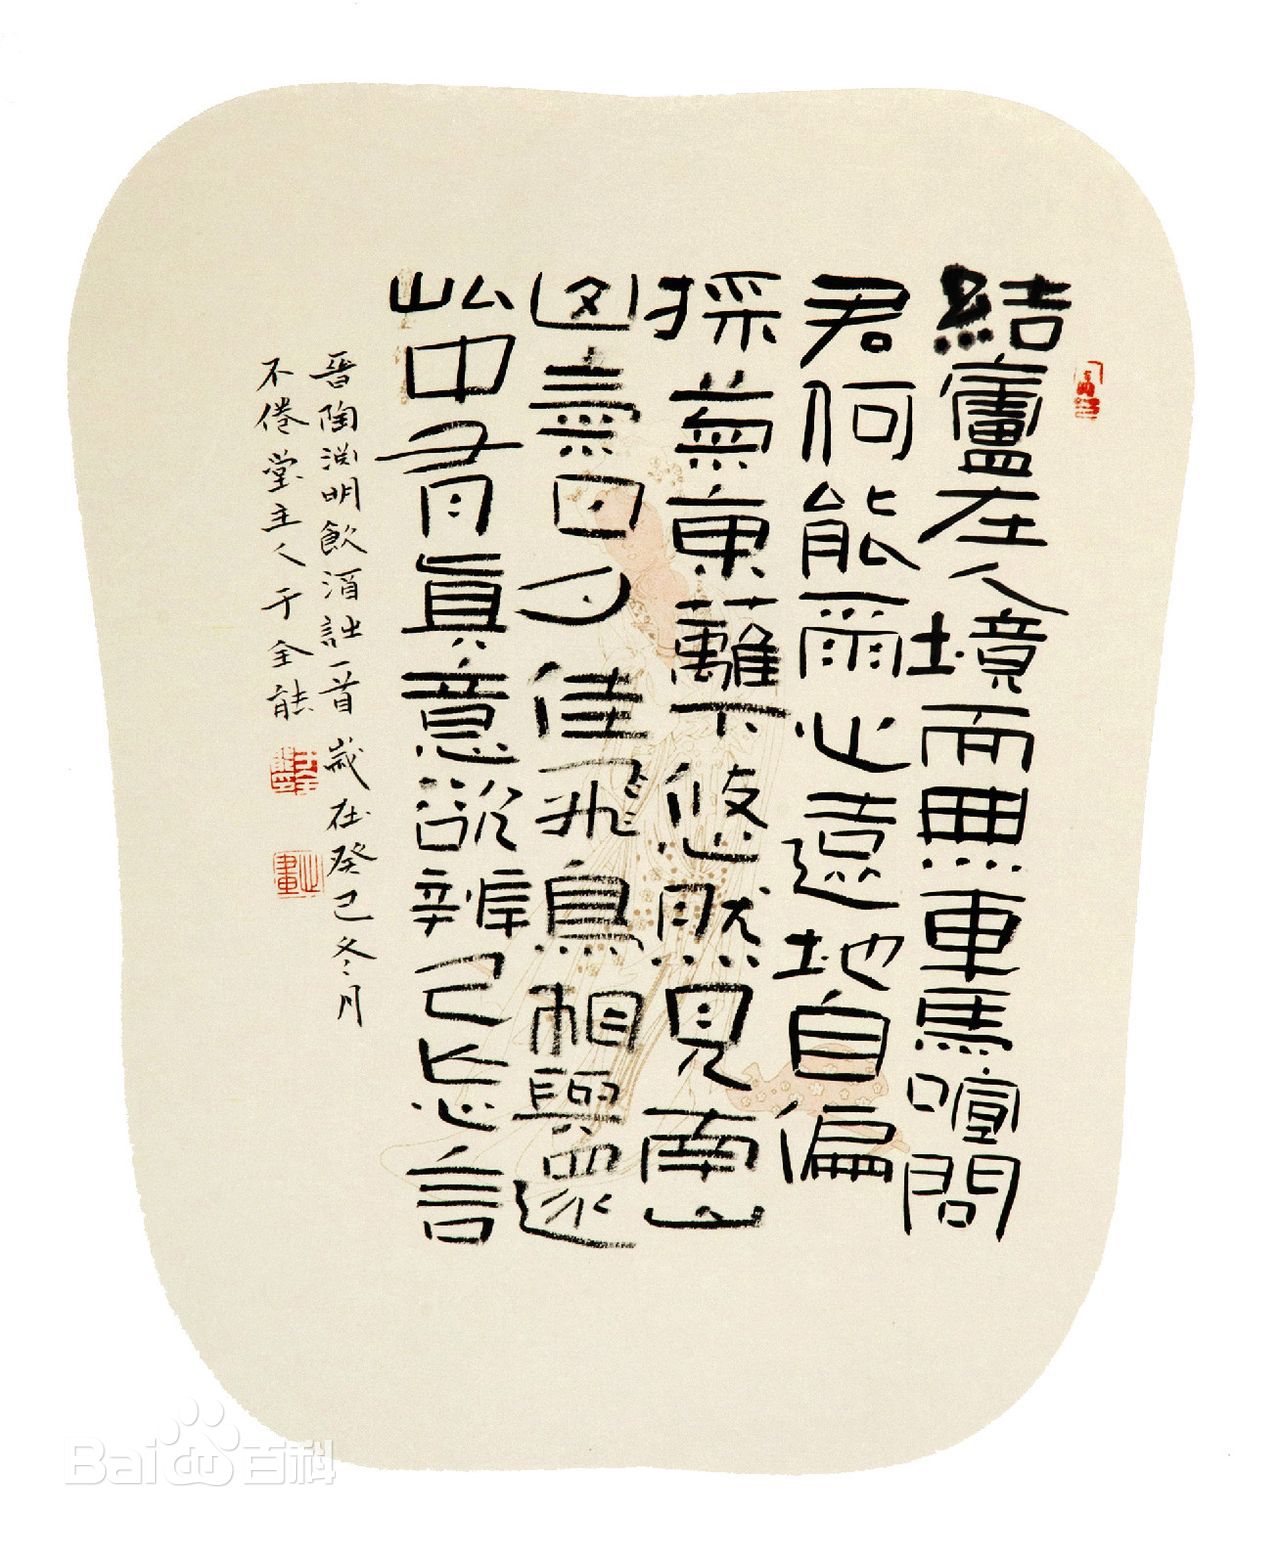 結廬在人境而無車馬喧問
君何能爾心遠地自偏
採菊東籬下悠然見南山
山炁日夕佳飛鳥相與還
此中有眞意欲辨已忘言
晉陶渕明飲酒詩一首 歲在癸巳冬月
不倦堂主人于全能
Bai百科